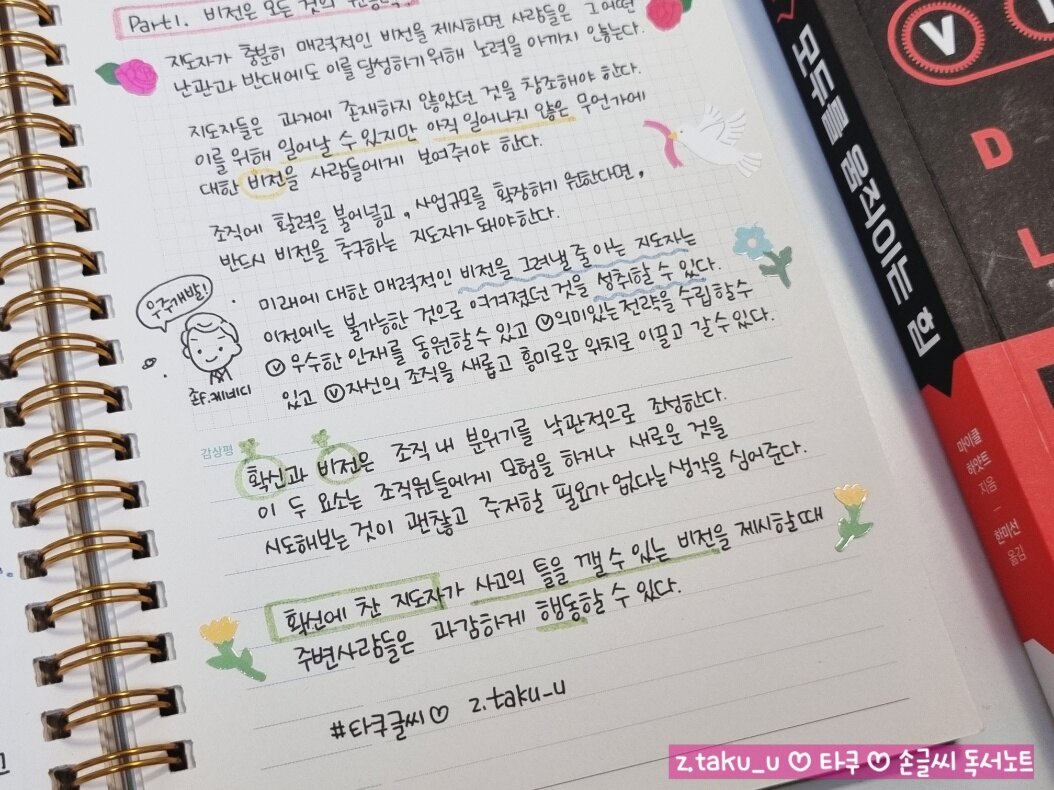 Part1. 비전은 모든 것의
지도자가 충분히 매력적인 비전을 제시하면 사람들은 그 어떤
난관과 반대에도 이를 달성하기 위해 노력을 아끼지 않는다.
지도자들은 과거에 존재하지 않았던 것을 창조해야 한다.
이를 위해 일어날 수 있지만 아직 일어나지 않은 무언가에
대한 비전을 사람들에게 보여줘야 한다.
조직에 활력을 불어넣고, 사업규모를 확장하기 원한다면,
반드시 비전을 추구하는 지도자가 돼야한다.
우주개발!
존F.케네디
· 미래에 대한 매력적인 비전을 그려낼 줄 아는 지도자는
이전에는 불가능한 것으로 여겨졌던 것을 성취할 수 있다.
ⓥ우수한 인재를 동원할수 있고 ⓥ의미있는 전략을 수립할수
있고 ⓥ자신의 조직을 새롭고 흥미로운 위치로 이끌고 갈수 있다.
감상평
확신과 비전은 조직 내 분위기를 낙관적으로 조성한다.
이 두 요소는 조직원들에게 모험을 하거나 새로운 것을
시도해보는 것이 괜찮고 주저할 필요가 없다는 생각을 심어준다.
확신에 찬 지도자가 사고의 틀을 깰 수 있는 비전을 제시할때
주변사람들은 과감하게 행동할 수 있다.
#타쿠글씨♡ z.taku_u
모두를 움직이는 힘
V
D
L
마이클
하얏트
지음
한미선
옮김
z.taku_u ♡ 타쿠 ♡ 손글씨 독서노트